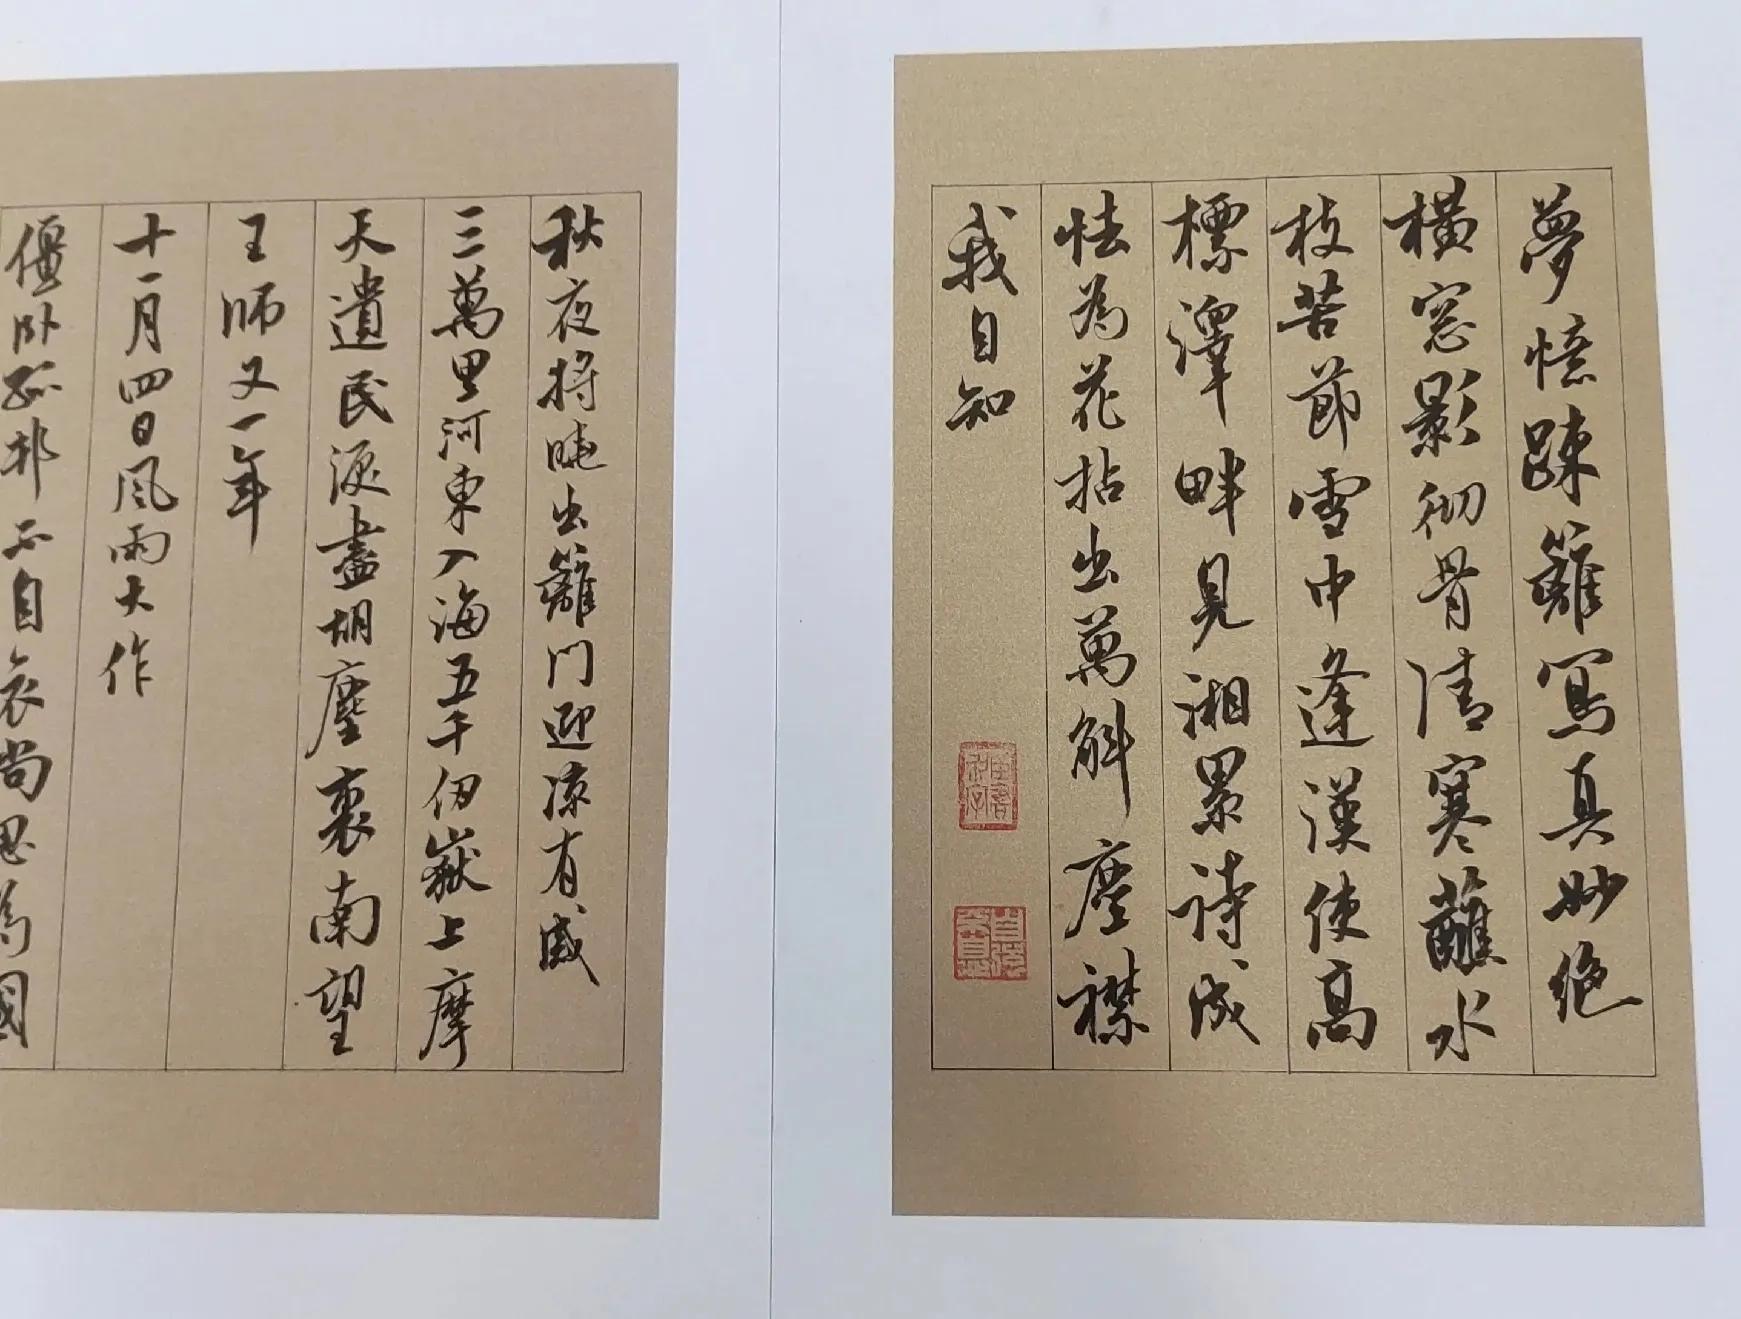 夢憶疎籬寫真妙絶
橫窓影彻骨清寒蘸水
枝苦節雪中逢漢使高
標澤畔見湘累詩成
怯為花拈出萬斛塵襟
我自知
秋夜將曉出籬門迎涼有感
三萬里河東入海五千仞嶽上摩
天遺民淚盡胡塵裏南望
王師又一年
十一月四日風雨大作
僵卧孤邨不自哀尚思為國